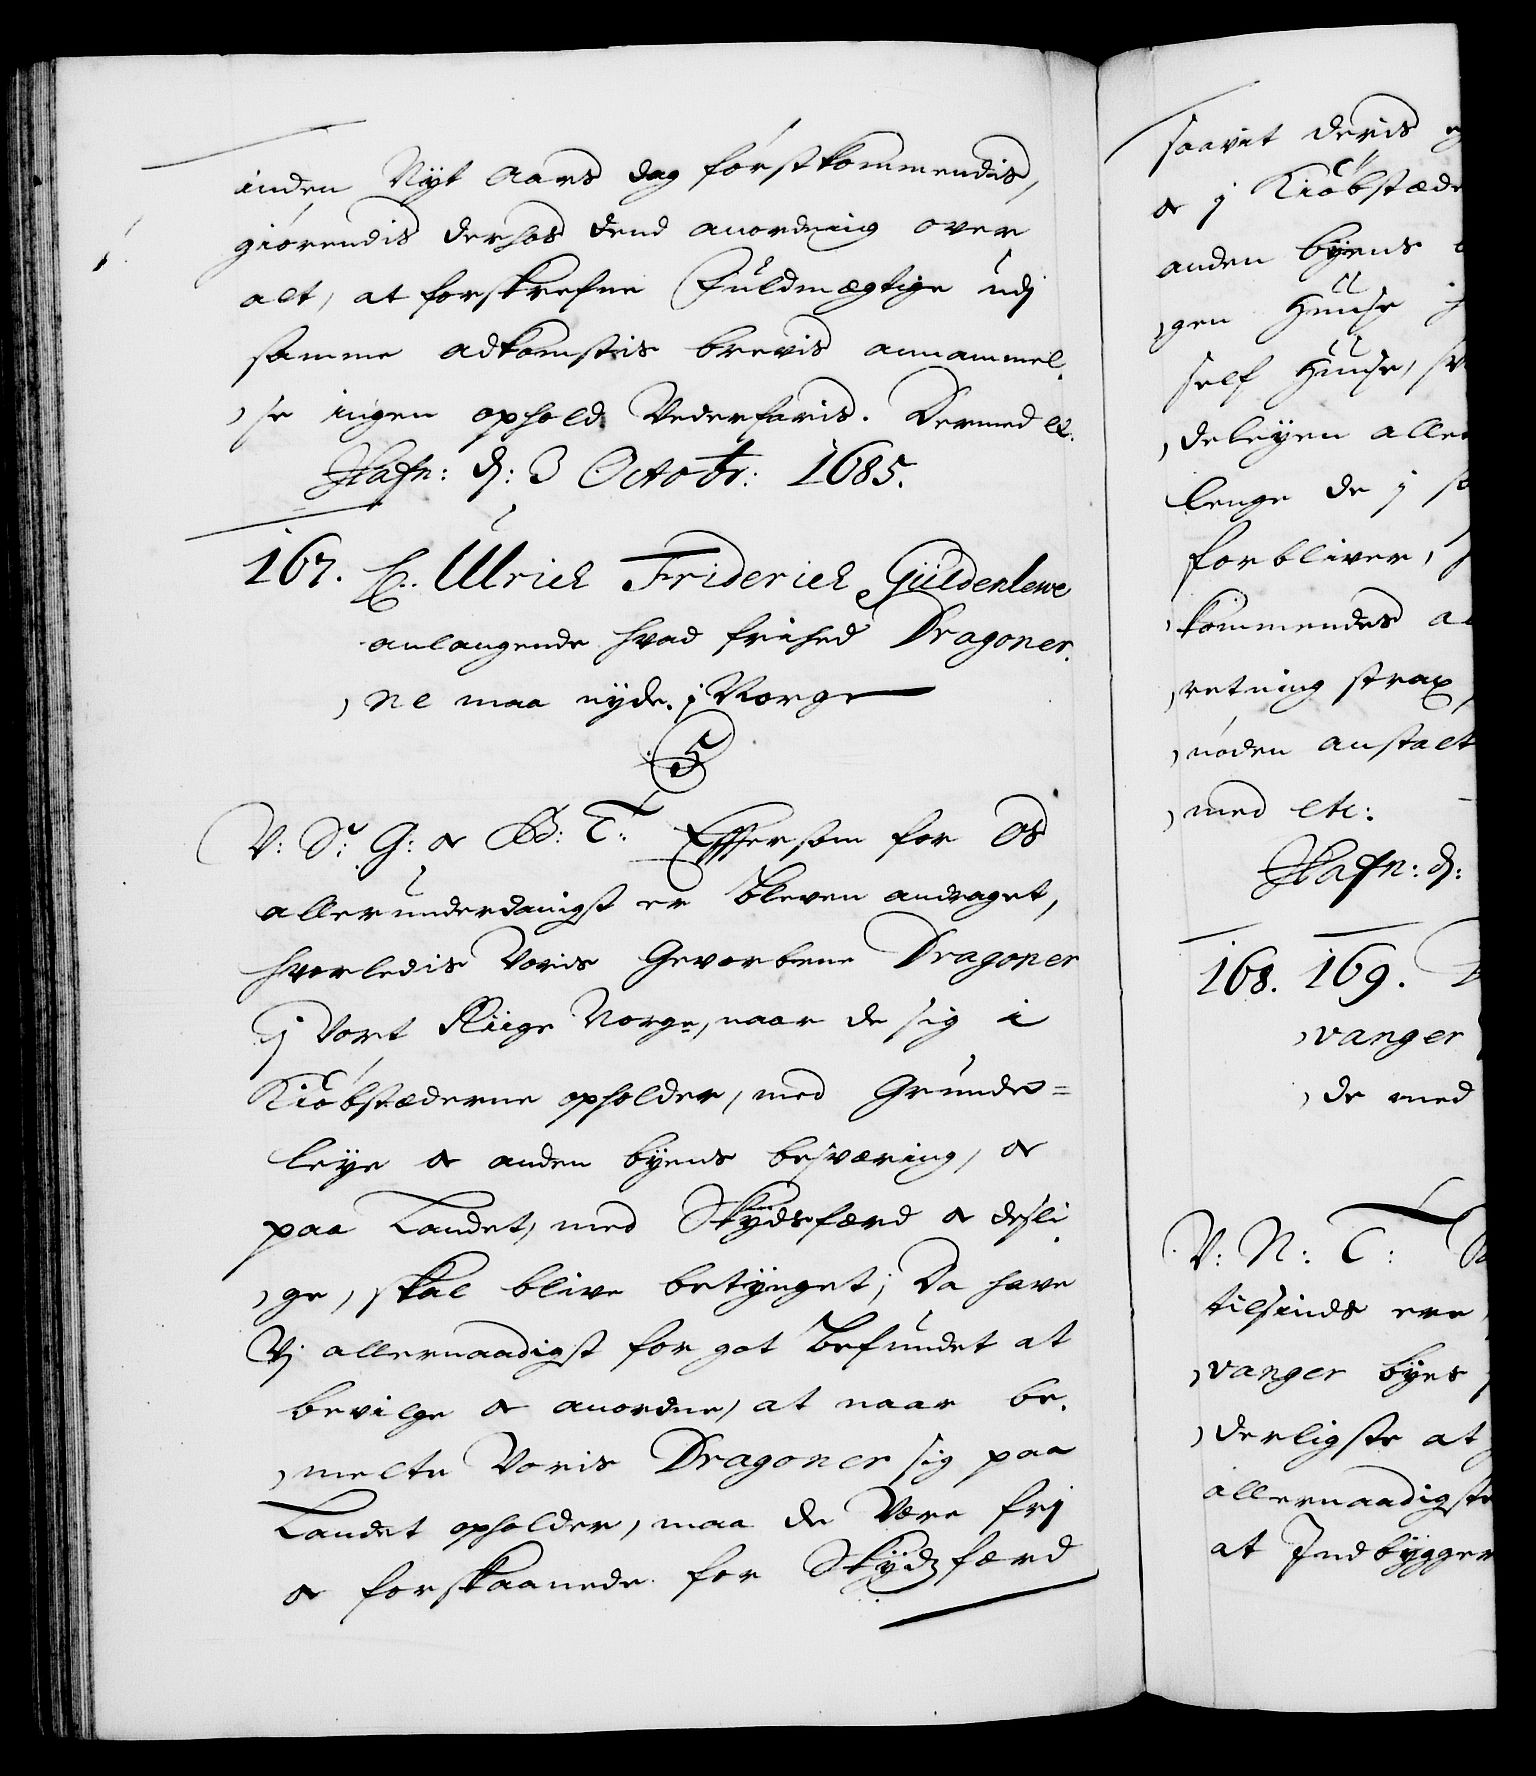 inden Nyt Aars dag förstkommendis,
giörendis derhos dend anordning over
alt, at forskrefne Fuldmægtige udj
samme adkomstis brevis annammel,
,se ingen ophold Vederfaris. Dermed etc.
Hafn: d: 3 Octobr: 1685.
167. Ulrich Friderich Güldenlewe
anlangende hvad frihed Dragoner,
,ne maa nyde j Norge
C5
V: Sr: G: og B: T: Effter som for Os
allerunderdanigst er bleven andraget,
hvorledis Voris Gevorbene Dragoner
j Vort Riige Norge, naar de sig i
Kiöbstæderne opholder, med Grunde=
leye og anden byens besværing, og
paa Landet, med Skydsfærd og desli
,ge, skal blive betynget; Da have
Vj allernaadigst for got befundet at
bevilge og anordne, at naar be,
,melte Voris Dragoner sig paa
Landet opholder, maa de Være frj
og forskaanede for Skydsfærd
saavit deris
og j Kiöbstæde
anden byens
,gen Huuse
self Huuse,
,deleyen alle
lenge de j
forbliver,
kommendes
,retning strax,
,nöden anstalt
,med etc:
Hafn: d:
168. 169.
,vanger
,de med
V: N: T:
tilsinds ere
,vanger byes
,derligste at
allernaadigste
at Indbygger